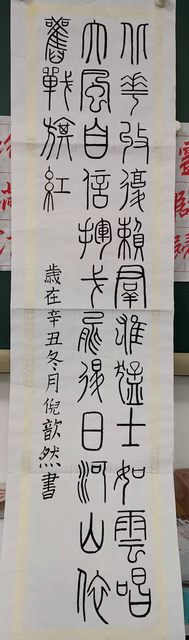 北華收復賴羣雄猛士如雲唱
大風自信揮戈能退日河山依
舊戰旗紅
歲在辛丑冬月倪歆然書